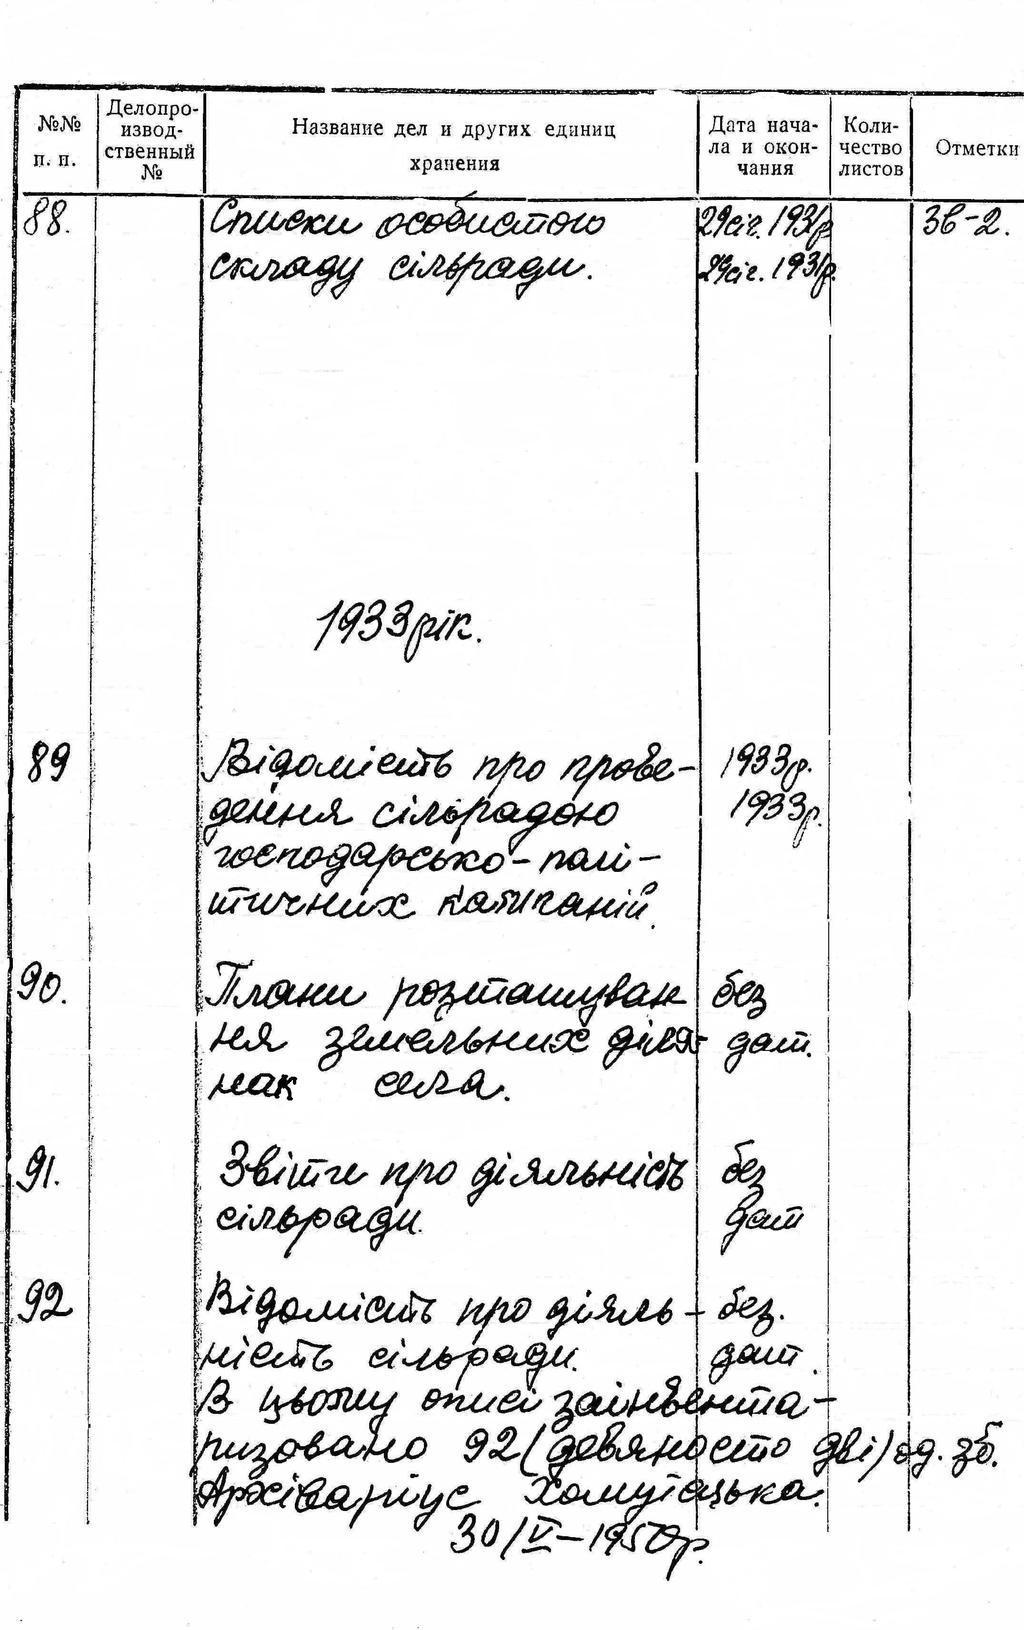 №№ п. п.
Делопроизвод-ственный №
Название дел и других единиц хранения
Дата нача-ла и окон-чания
Коли-чество листов
Отметки
88. Списки особистого 29 січ. 1931р. Зв-2.
складу сільради. 29 січ. 1931р.
1933 рік.
89 Відомість про прове- 1933р.
дення сільрадою 1933р.
господарсько-полі-
тичних кампаній.
90. Плани розташуван без
ня земельних діля- дат.
нак села.
91. Звіти про діяльність без
сільради. дат
92 Відомість про діяль- без.
ність сільради. дат.
В цьому описі заінвента-
ризовано 92 (девяносто дві) од. зб.
Архіваріус
30/V-1950р.